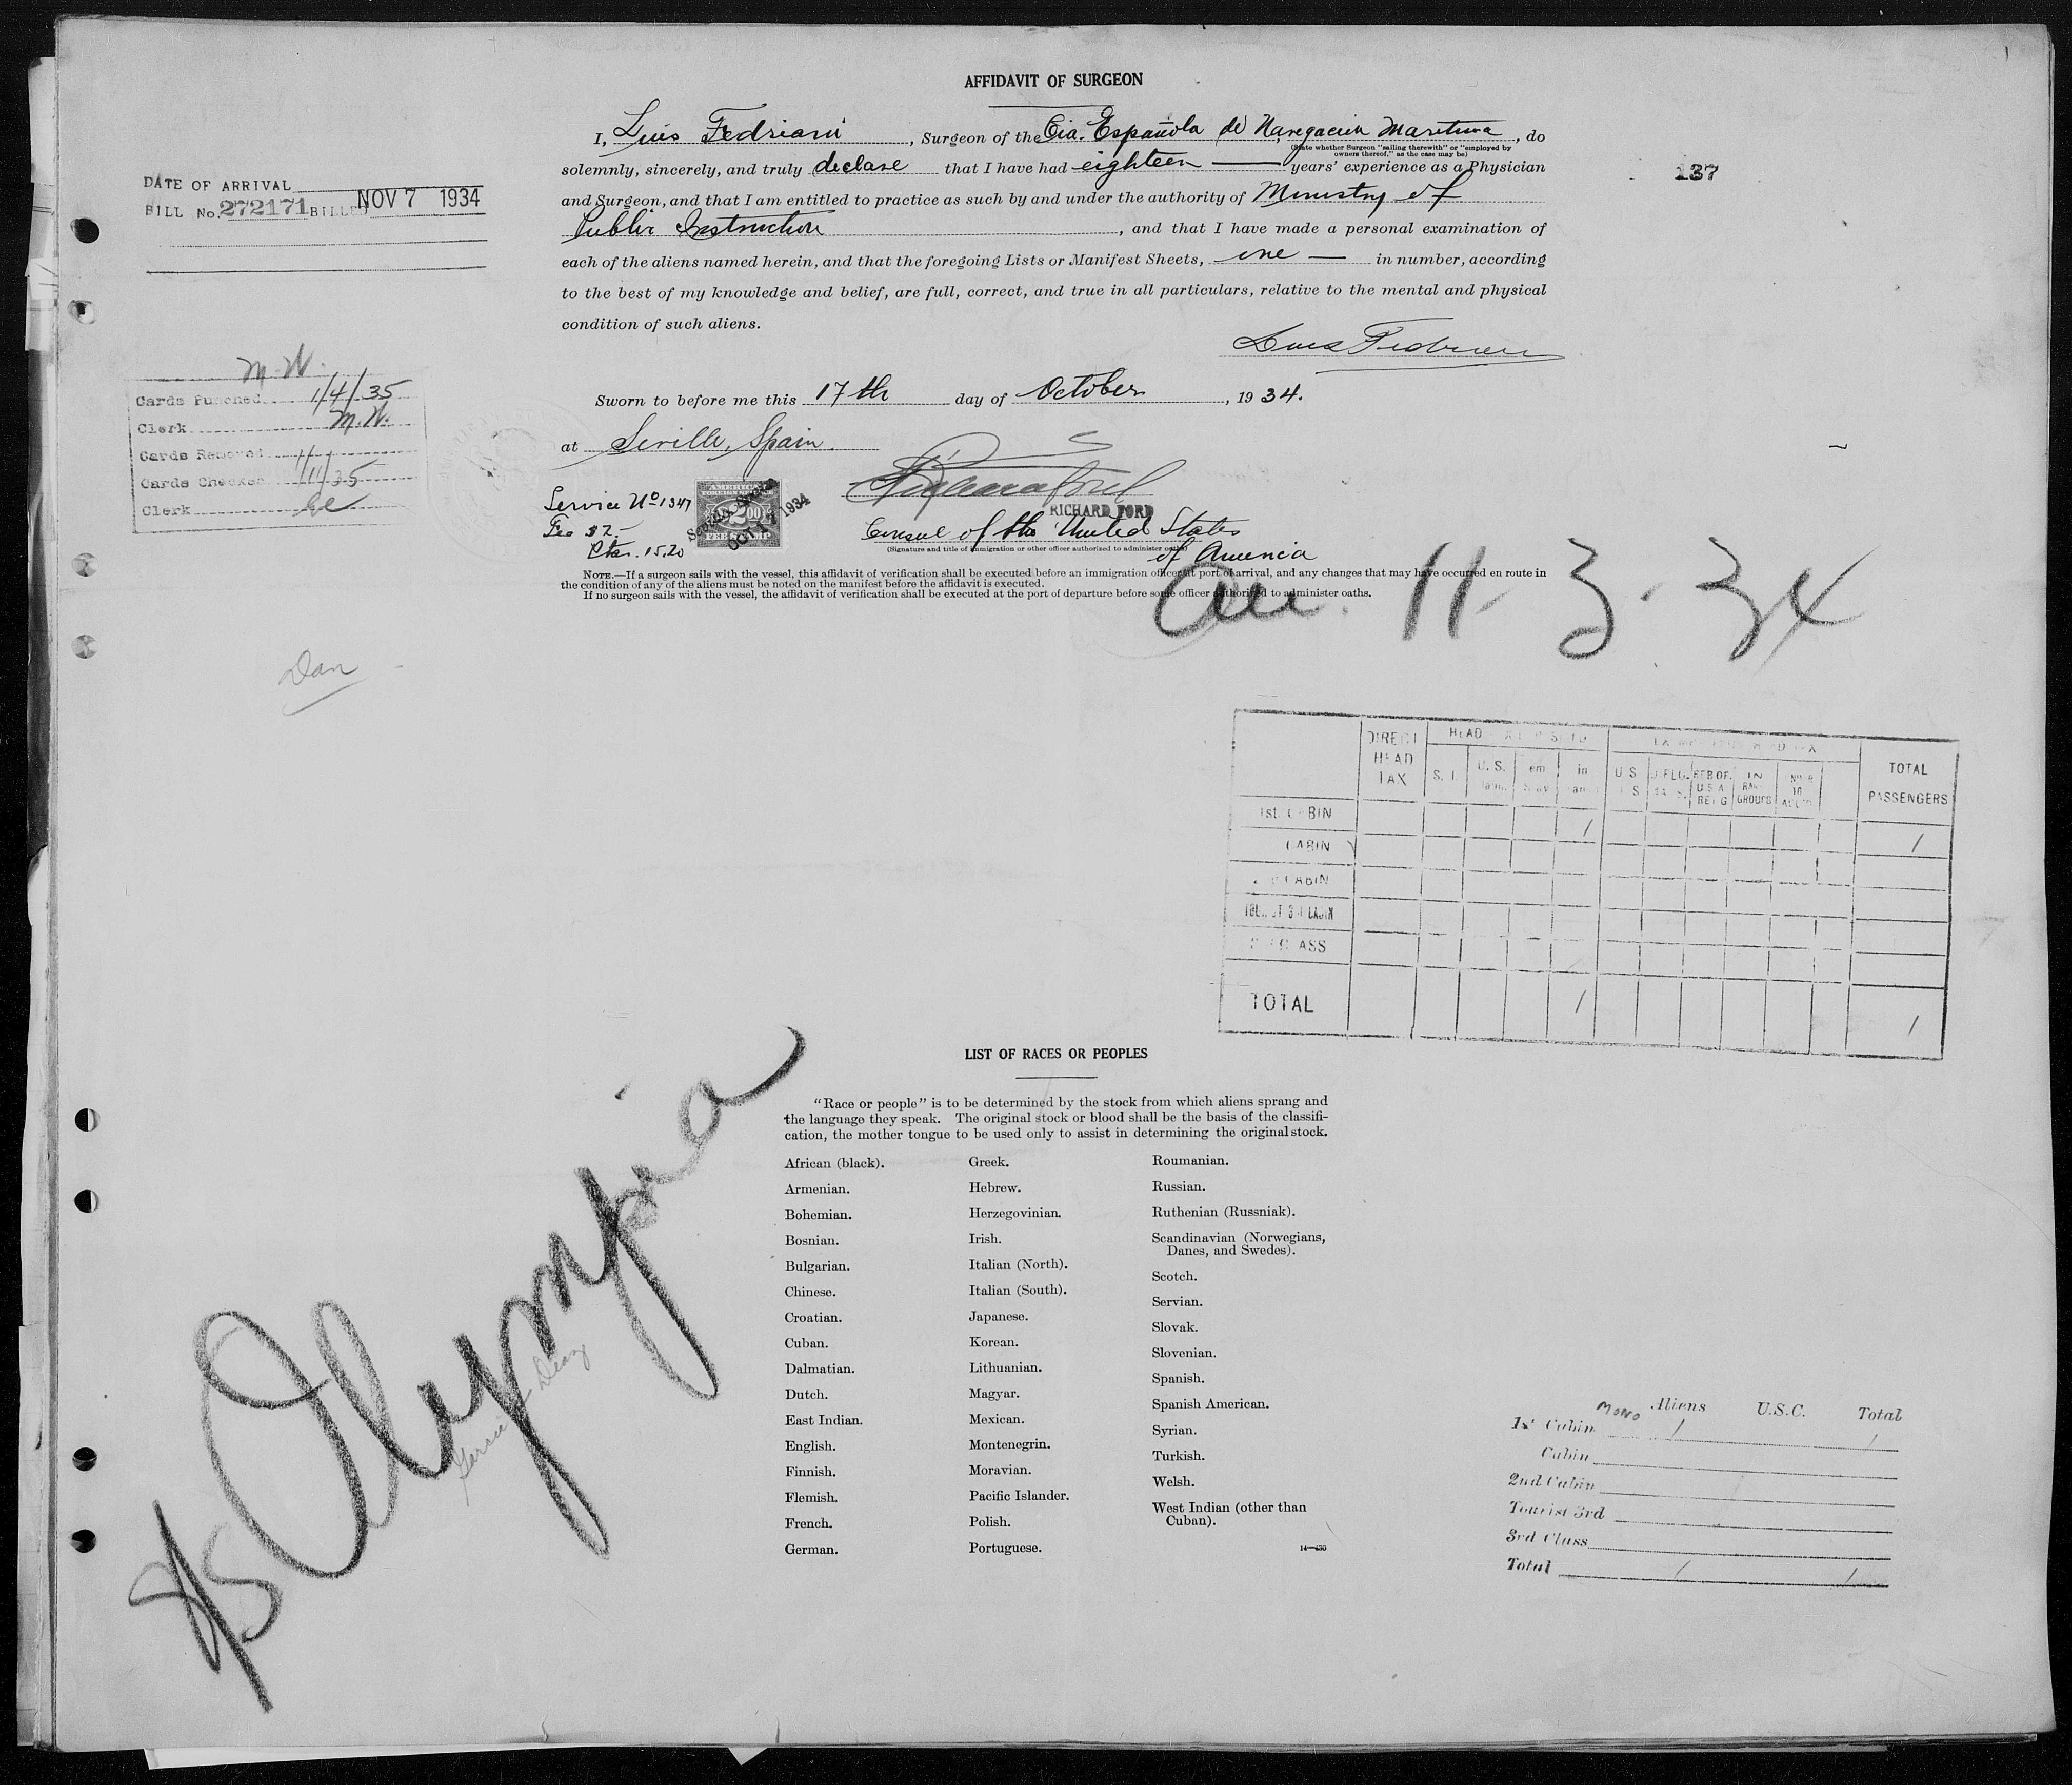 AFFIDAVIT OF SURGEON
I, Luis Fedriani, Surgeon of the Cia. Española de Navegación Maritima, do
(State whether Surgeon "sailing therewith" or "employed by
owners thereof," as the case may be)
solemnly, sincerely, and truly declare that I have had eighteen years' experience as a Physician
and Surgeon, and that I am entitled to practice as such by and under the authority of Ministry of
Public Instruction, and that I have made a personal examination of
each of the aliens named herein, and that the foregoing Lists or Manifest Sheets, one — in number, according
to the best of my knowledge and belief, are full, correct, and true in all particulars, relative to the mental and physical
condition of such aliens.
Luis Fedriani
137
DATE OF ARRIVAL
BILL No. 272171 BILLED NOV 7 1934
M.W.
Cards Punched 1/4/35
Clerk M.W.
Cards Removed
Cards Checked 1/11/35
Clerk
Sworn to before me this 17th day of October, 1934.
at Seville, Spain
Service Nº 1347
Fee $2.-
Ptas. 15.20
AMERICAN
FOREIGN SERVICE
$2.00
FEE STAMP
OCT 17 1934
RICHARD FORD
Consul of the United States
(Signature and title of immigration or other officer authorized to administer oaths)
of America
NOTE.—If a surgeon sails with the vessel, this affidavit of verification shall be executed before an immigration officer at port of arrival, and any changes that may have occurred en route in
the condition of any of the aliens must be noted on the manifest before the affidavit is executed.
If no surgeon sails with the vessel, the affidavit of verification shall be executed at the port of departure before some officer authorized to administer oaths.
11-3-34
Dan
DIRECT HEAD TAX
HEAD
S. I.
U. S.
in
U S
REP OF U S A REFG
IN RANK GROUPS
TOTAL PASSENGERS
1st. CABIN 1 1
CABIN
2nd CABIN
3rd CLASS
TOTAL 1 1
LIST OF RACES OR PEOPLES
"Race or people" is to be determined by the stock from which aliens sprang and
the language they speak. The original stock or blood shall be the basis of the classifi-
cation, the mother tongue to be used only to assist in determining the original stock.
African (black).
Armenian.
Bohemian.
Bosnian.
Bulgarian.
Chinese.
Croatian.
Cuban.
Dalmatian.
Dutch.
East Indian.
English.
Finnish.
Flemish.
French.
German.
Greek.
Hebrew.
Herzegovinian.
Irish.
Italian (North).
Italian (South).
Japanese.
Korean.
Lithuanian.
Magyar.
Mexican.
Montenegrin.
Moravian.
Pacific Islander.
Polish.
Portuguese.
Roumanian.
Russian.
Ruthenian (Russniak).
Scandinavian (Norwegians,
Danes, and Swedes).
Scotch.
Servian.
Slovak.
Slovenian.
Spanish.
Spanish American.
Syrian.
Turkish.
Welsh.
West Indian (other than
Cuban).
14—430
S/S Olympia
Mono Aliens U.S.C. Total
1st Cabin 1 1
Cabin
2nd Cabin
Tourist 3rd
3rd Class
Total 1 1